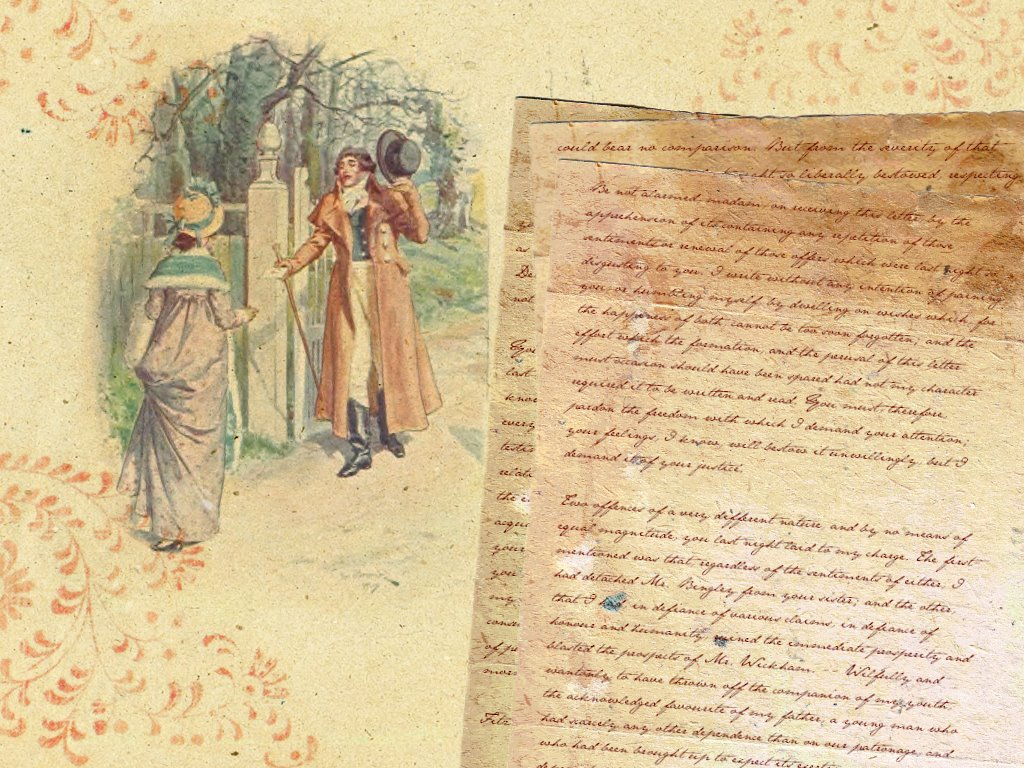 could bear no comparison. But from the severity of that
so liberally bestowed, respecting
Be not alarmed, madam, on receiving this letter, by the
apprehension of its containing any repetition of those
sentiments or renewal of those offers which were last night so
disgusting to you. I write without any intention of paining
you, or humbling myself, by dwelling on wishes which, for
the happiness of both, cannot be too soon forgotten; and the
effort which the formation, and the perusal of this letter
must occasion should have been spared had not my character
required it to be written and read. You must, therefore,
pardon the freedom with which I demand your attention;
your feelings, I know, will bestow it unwillingly, but I
demand it of your justice.
Two offences of a very different nature, and by no means of
equal magnitude, you last night laid to my charge. The first
mentioned was that, regardless of the sentiments of either, I
had detached Mr. Bingley from your sister; and the other,
that I had, in defiance of various claims, in defiance of
honour and humanity, ruined the immediate prosperity and
blasted the prospects of Mr. Wickham. -- Wilfully and
wantonly to have thrown off the companion of my youth,
the acknowledged favourite of my father, a young man who
had scarcely any other dependence than on our patronage, and
who had been brought up to expect its
as
De
not
last
know
every
relate
the
acqu
your
you
my
conse
of p
mor
Fitz